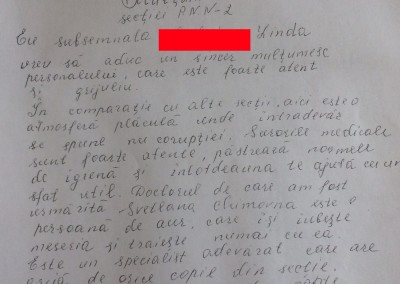 secției A.N.N-2
Eu subsemnata Zinda
vreu să aduc un sincer mulțumesc
personalului, care este foarte atent
și grijuliu.
În comparație cu alte secții, aici este o
atmosferă plăcută unde intradevăr
se spune nu corupției. Surorile medicale
sunt foarte atente, păstrează normele
de igienă și intotdeauna te ajută cu un
sfat util. Doctorul de care am fost
urmărită Svetlana Climovna este o
persoană de aur, care își iubește
meseria și traiește numai cu ea.
Este un specialist adevarat care are
grijă de orice copil din secție.